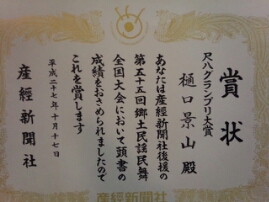 賞状
尺八グランプリ大賞
樋口景山殿
あなたは産經新聞社後援の
第五十五回郷土民謡民舞
全国大会において頭書の
成績をおさめられましたので
これを賞します
平成二十七年十月十七日
産經新聞社
産經新聞社